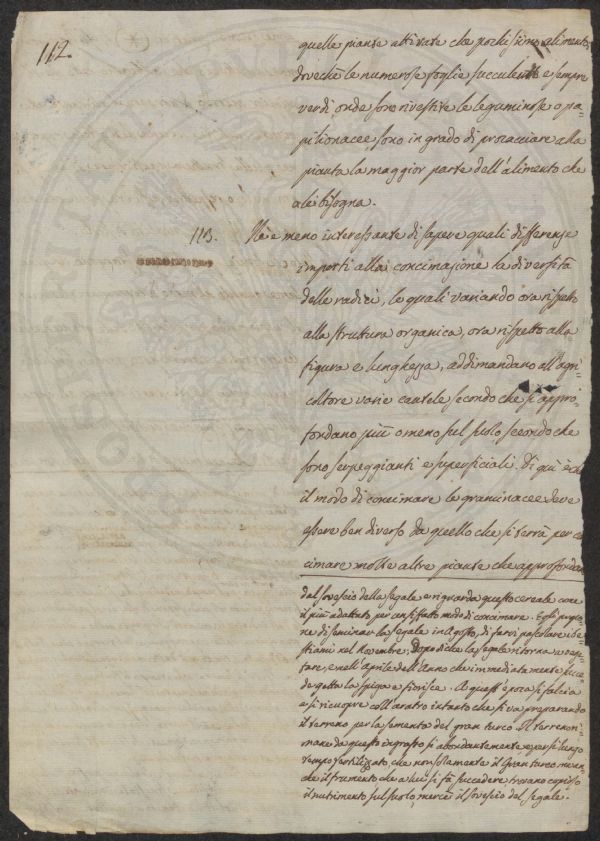 112.
quelle piante attivate che pochissimo alimento,
dovechè le numerose foglie succulenti e sempre
verdi onde sono rivestite le leguminose o pa=
pilionacee sono in grado di procacciare alla
pianta la maggior parte dell'alimento che
a lei bisogna.
113. Nè è meno interessante di sapere quali differenze
importi alla concimazione la diversità
delle radici, le quali variando ora rispetto
alla struttura organica, ora rispetto alla
figura e lunghezza, addimandano all'agri=
coltore varie cautele secondo che si appro=
fondano più o meno sul suolo secondo che
sono serpeggianti e superficiali. Di qui è che
il modo di concimare le graminacee deve
essere ben diverso da quello che si terrà per con
cimare molte altre piante che approfondan
dal sovescio della segale e riguarda questo cereale come
il più adattato per cosiffatto modo di concimare. Egli propo=
ne di seminar la segale in Agosto, di farvi pascolare i be=
stiami nel Novembre. Dopo di che la segale ritorna a vege=
tare, e nell'Aprile dell'Anno che immediatamente succe=
de getta la spiga e fiorisce. A quest'epoca si falcia
e si ricuopre coll'aratro intanto che si va preparando
il terreno per la sementa del gran turco. Il terreno ri=
mane da questo ingrasso sì abbondantemente e per sì lungo
tempo fertilizzato, che non solamente il Gran turco ma an=
che il frumento che a lui si fà succedere trovano copioso
il nutrimento sul suolo, mercè il sovescio del segale.